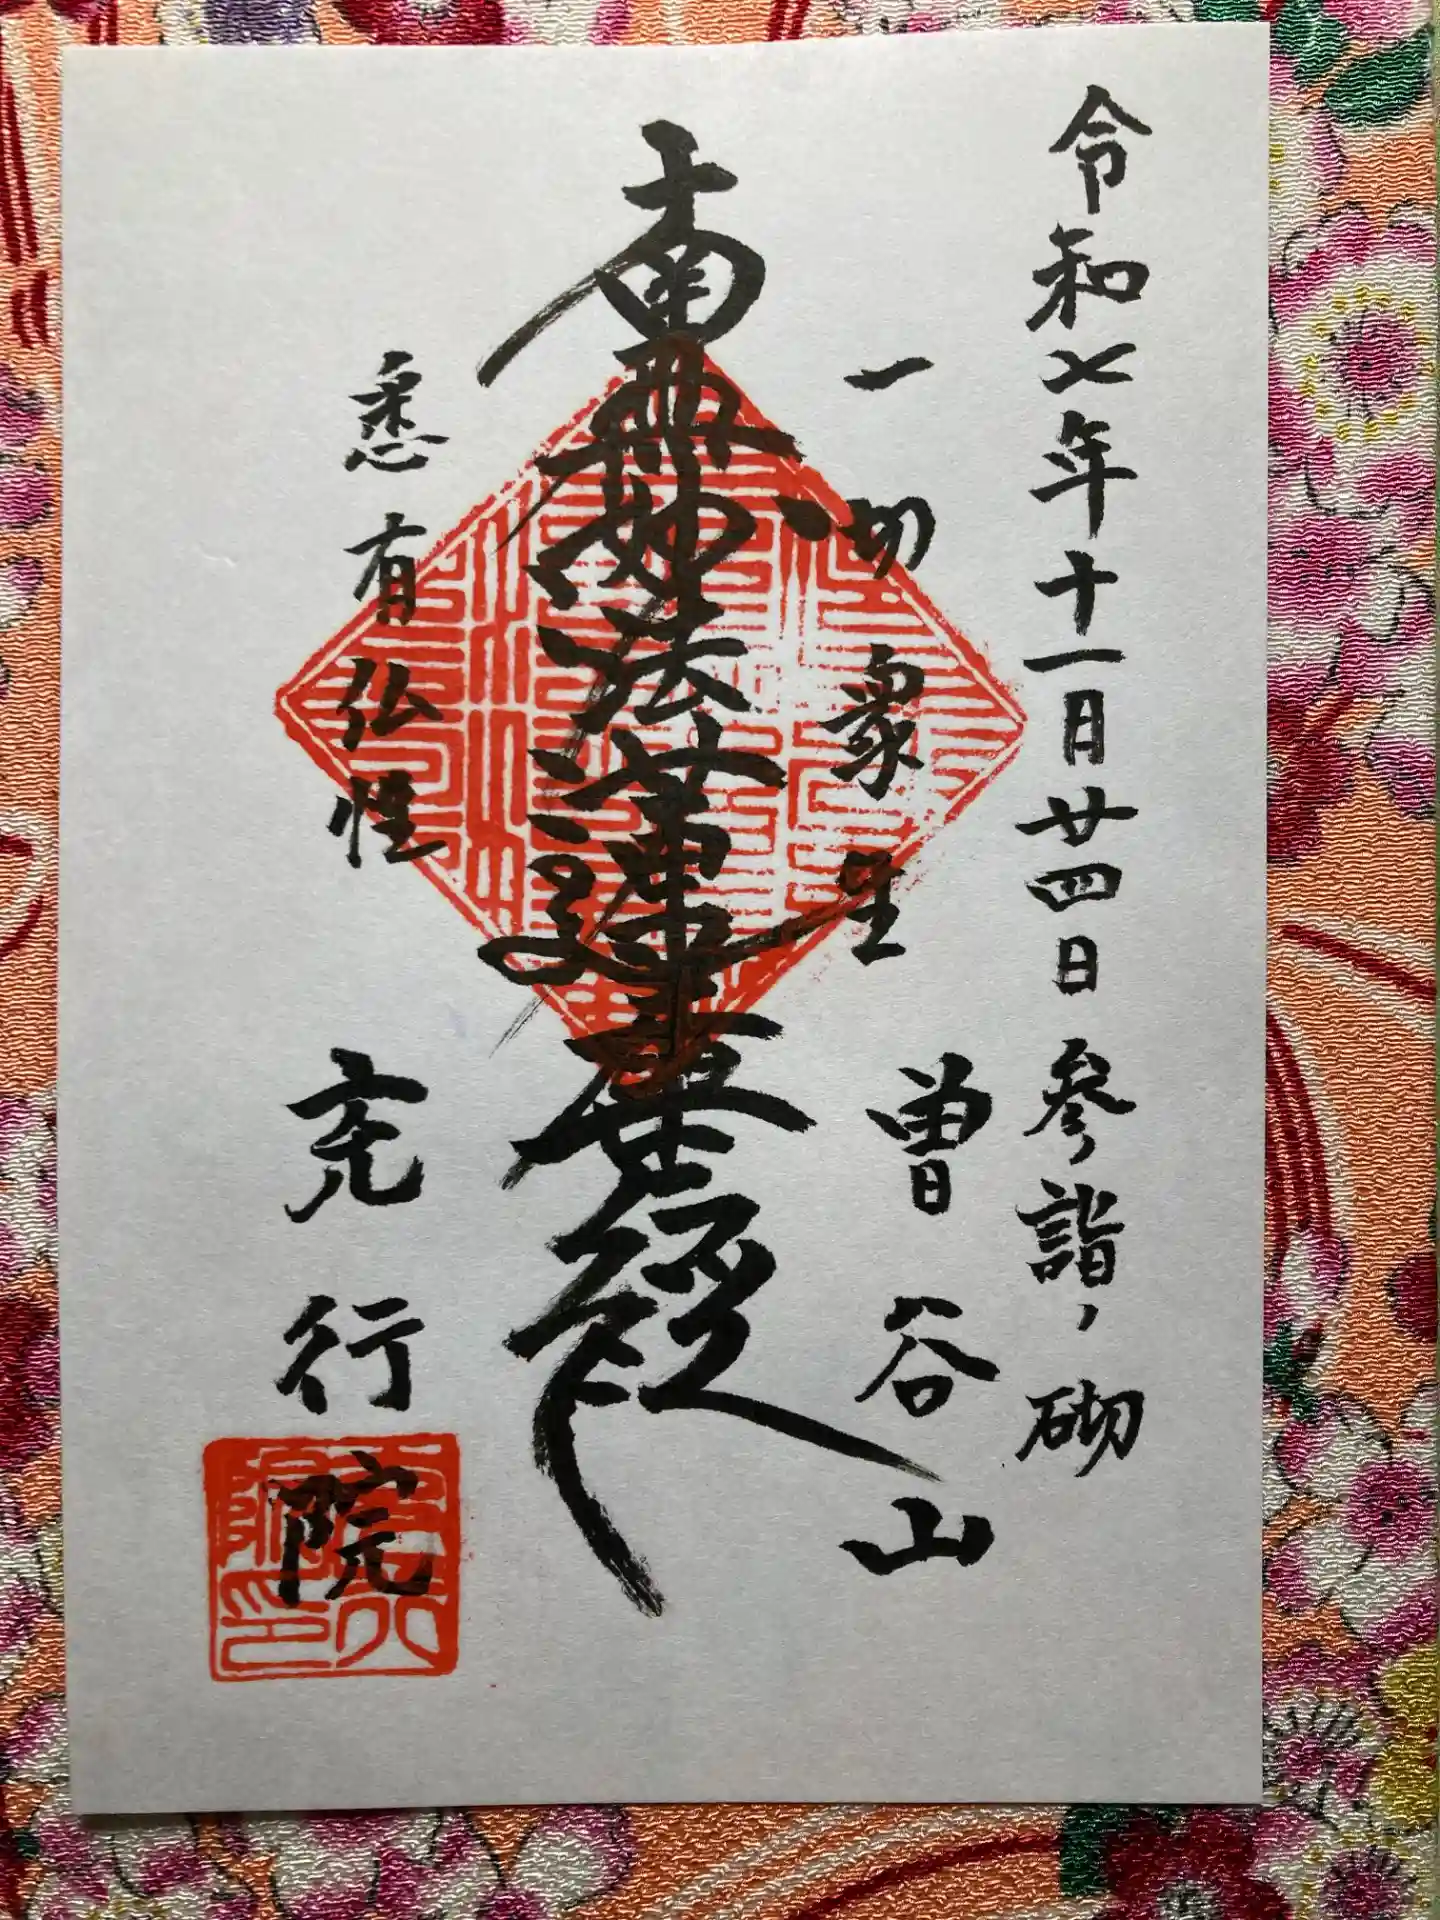 令和七年十一月廿四日参詣ノ砌
一切衆生
曽谷山
南無妙法蓮華経
悉有仏性
充行院